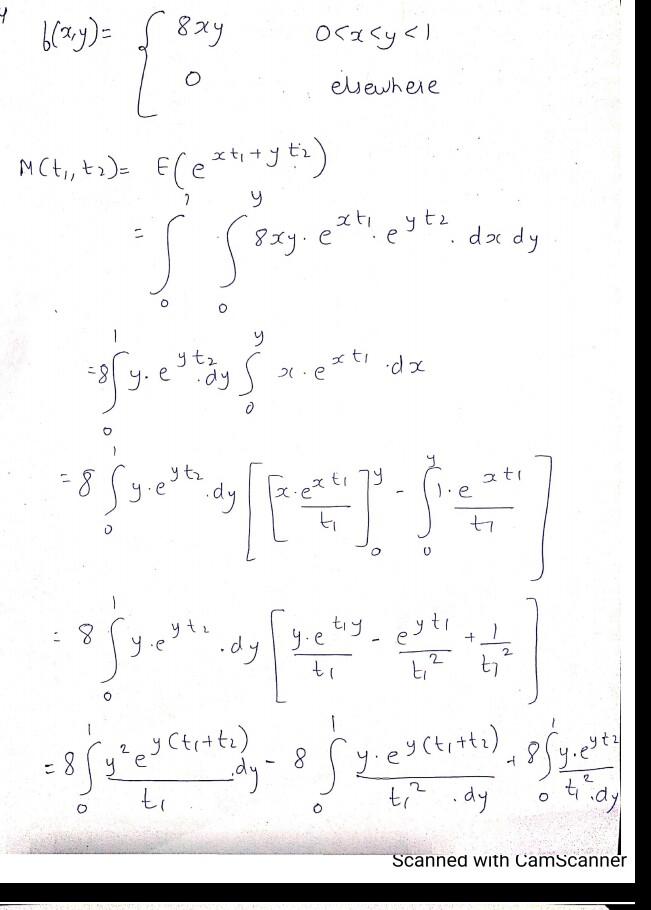 f(x,y) = { 8xy 0<x<y<1
0 elsewhere
M(t₁, t₂) = E(e^{xt₁ + yt₂})
= ∫₀¹ ∫₀^y 8xy · e^{xt₁} · e^{yt₂} · dx dy
= 8∫₀¹ y · e^{yt₂} · dy ∫₀^y x · e^{xt₁} · dx
= 8 ∫₀¹ y · e^{yt₂} · dy [ [x · e^{xt₁}/t₁]₀^y - ∫₀^y 1 · e^{xt₁}/t₁ ]
= 8 ∫₀¹ y · e^{yt₂} · dy [ y · e^{t₁y}/t₁ - e^{yt₁}/t₁² + 1/t₁² ]
= 8 ∫₀¹ y² e^{y(t₁+t₂)}/t₁ · dy - 8 ∫₀¹ y · e^{y(t₁+t₂)}/t₁² · dy + 8 ∫₀¹ y · e^{yt₂}/t₁² · dy
Scanned with CamScanner